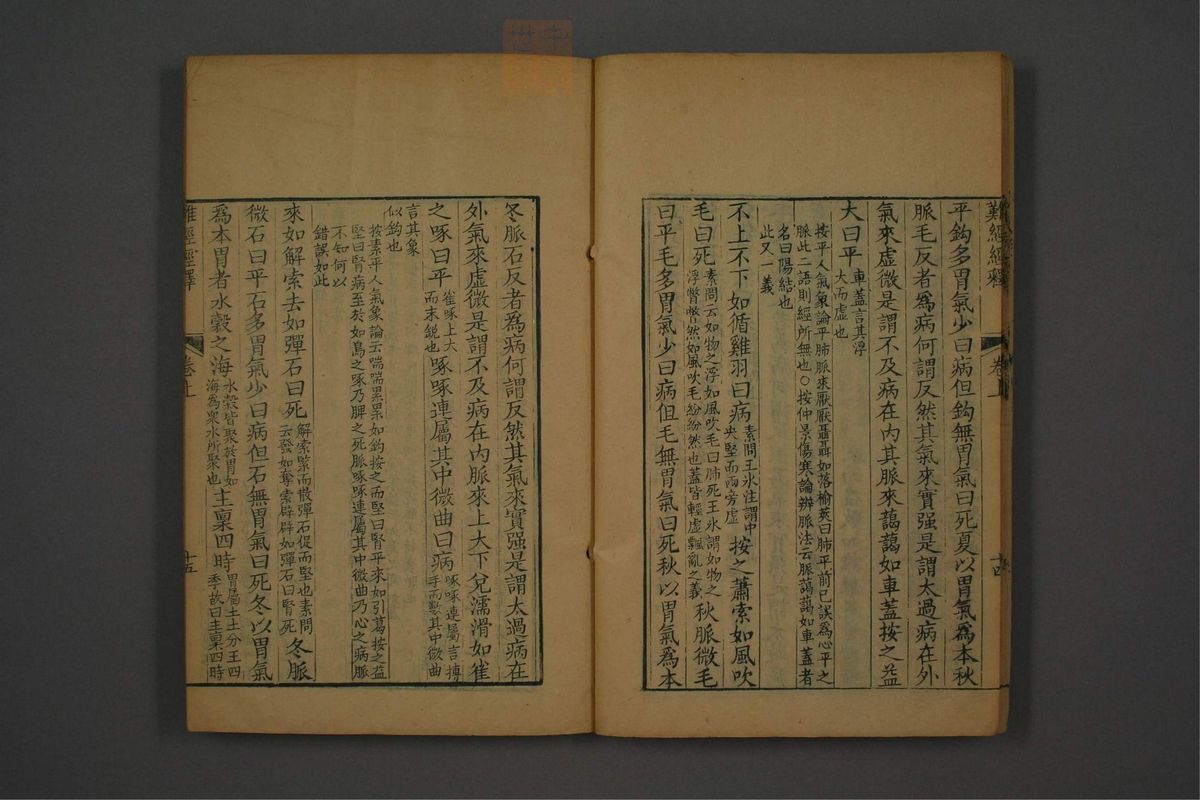 難經經釋
卷上
十四
平鈎多胃氣少曰病但鈎無胃氣曰死夏以胃氣爲本秋
脈毛反者爲病何謂反然其氣來實强是謂太過病在外
氣來虛微是謂不及病在內其脈來藹藹如車蓋按之益
大曰平
車蓋言其浮
大而虛也
按平人氣象論平肺脈來厭厭聶聶如落榆莢曰肺平前已誤爲心平之
脈此二語則經所無也○按仲景傷寒論辨脈法云脈藹藹如車蓋者
名曰陽結也
此又一義
不上不下如循雞羽曰病
素問王氷注謂中
央堅而兩旁虛
按之蕭索如風吹
毛曰死
素問云如物之浮如風吹毛曰肺死王氷謂如物之
浮瞥瞥然如風吹毛紛紛然也蓋皆輕虛飄亂之義
秋脈微毛
曰平毛多胃氣少曰病但毛無胃氣曰死秋以胃氣爲本
冬脈石反者爲病何謂反然其氣來實强是謂太過病在
外氣來虛微是謂不及病在內脈來上大下兌濡滑如雀
之啄曰平
雀啄上大
而末銳也
啄啄連屬其中微曲曰病
啄啄連屬言搏
手而數其中微曲
言其象
似鈎也
按素平人氣象論云喘喘累累如鈎按之而堅曰腎平來如引葛按之益
堅曰腎病至於如鳥之啄乃脾之死脈啄啄連屬其中微曲乃心之病脈
不知何以
錯誤如此
來如解索去如彈石曰死
解索緊而散彈石促而堅也素問
云發如奪索辟辟如彈石曰腎死
冬脈
微石曰平石多胃氣少曰病但石無胃氣曰死冬以胃氣
爲本胃者水穀之海
水穀皆聚於胃如
海爲衆水所聚也
主稟四時
胃屬土土分王四
季故曰主稟四時
難經經釋
卷上
十五